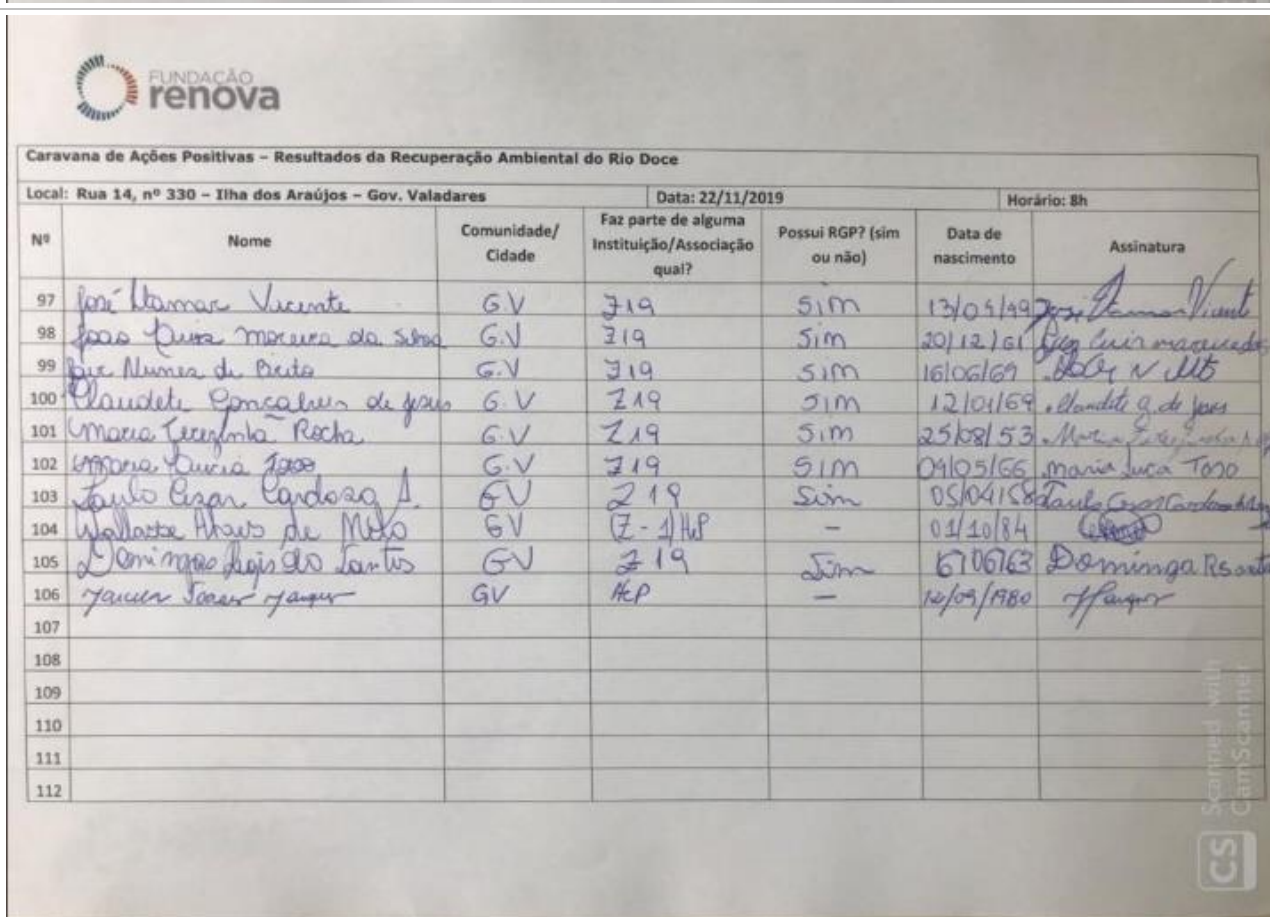 FUNDAÇÃO
renova
Caravana de Ações Positivas – Resultados da Recuperação Ambiental do Rio Doce
Local: Rua 14, nº 330 – Ilha dos Araújos – Gov. Valadares Data: 22/11/2019 Horário: 8h
Nº Nome Comunidade/ Cidade Faz parte de alguma Instituição/Associação qual? Possui RGP? (sim ou não) Data de nascimento Assinatura
97 José Itamar Vicente G.V Z19 Sim
98 Joao Luiz moreira da Silva G.V Z19 Sim 20/12/61
99 Nunes de Brito G.V Z19 Sim 16/06/69
100 Claudete Gonçalves de jesus G.V Z19 Sim 12/01/69 Claudete g. de jesus
101 Maria Terezinha Rocha G.V Z19 Sim 25/08/53 Maria
102 Maria Lucia G.V Z19 Sim 09/05/66 maria Luca
103 Paulo Cezar Cardoso A. GV Z19 Sim 05/04/58 Paulo Cezar Cardoso
104 de GV – 01/10/84
105 Domingas do Santos GV Z19 Sim Dominga R santo
106 GV – 12/09/1980
107
108
109
110
111
112
Scanned with
CamScanner
CS